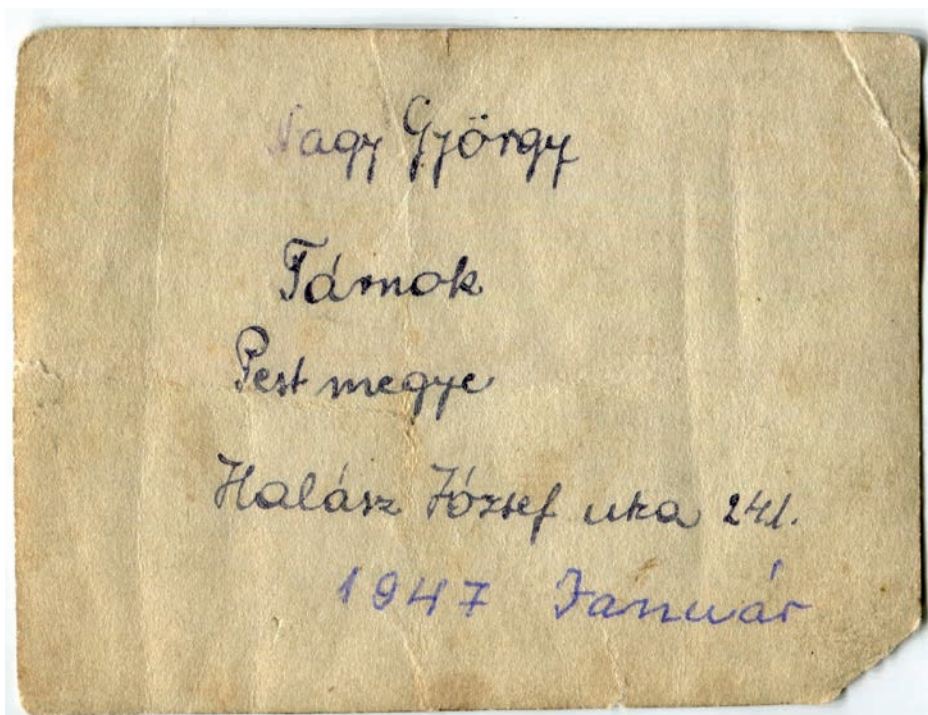 Nagy György
Tárnok
Pest megye
Halász József utca 241.
1947 Január